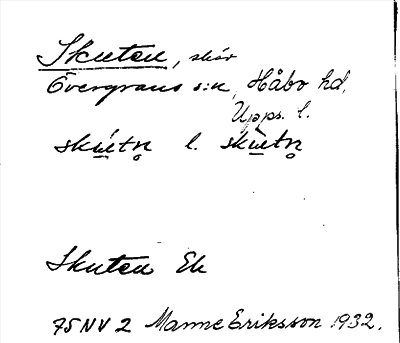 Skuten, skär
Övergrans s:n, Håbo hd,
Upps. l.
skú̲tn̥ l. skù̲tn̥
Skuten Ek
75 NV 2 Manne Eriksson 1932.